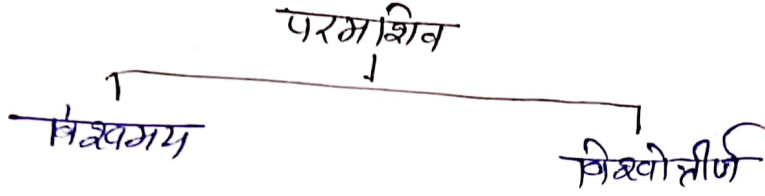 परमशिव
विश्वमय
विश्वोत्तीर्ण